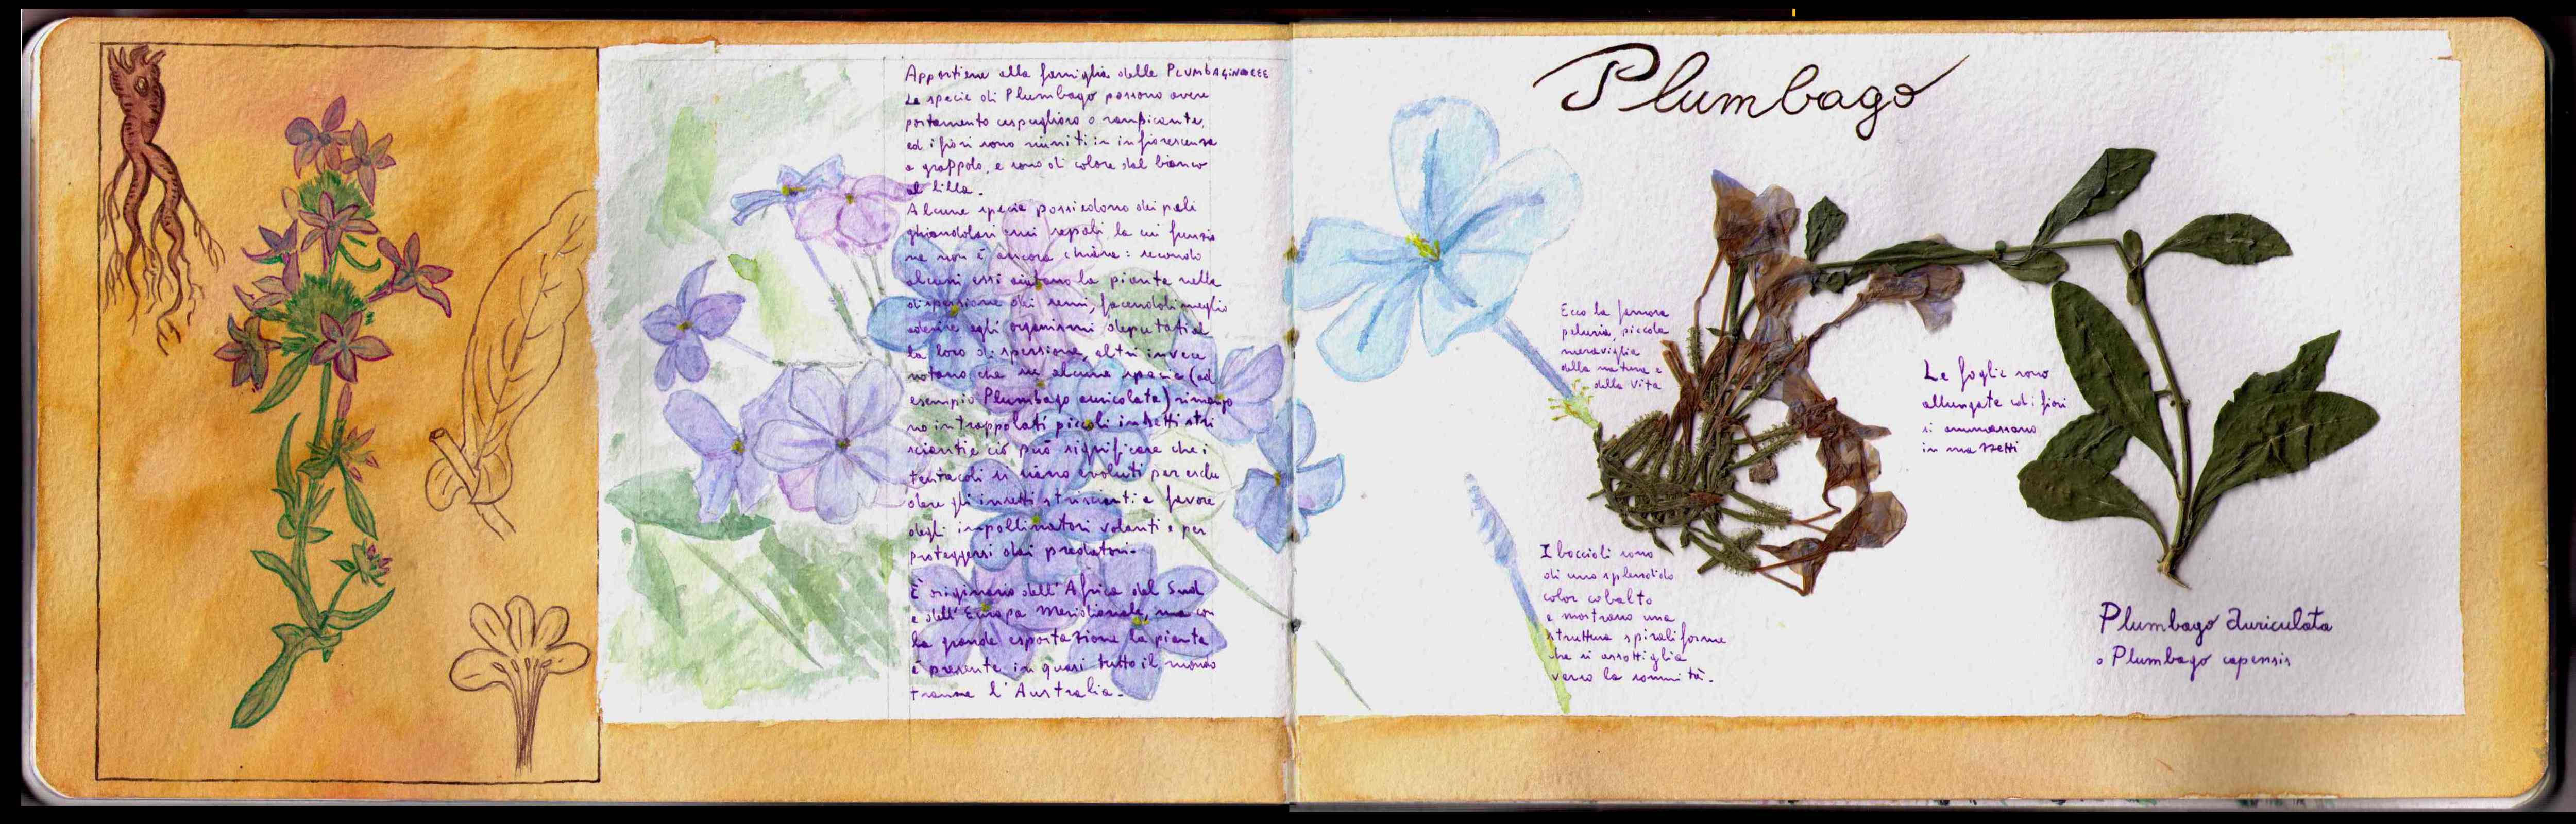 Appartiene alla famiglia delle PLUMBAGINACEE
Le specie di Plumbago possono avere
portamento cespuglioso o rampicante,
ed i fiori sono riuniti in infiorescenza
a grappolo, e sono di colore dal bianco
al lilla.
Alcune specie possiedono dei peli
ghiandolari sui sepali la cui funzio
ne non è ancora chiara: secondo
alcuni essi aiutano la pianta nella
dispersione dei semi, facendoli meglio
aderire agli organismi deputati al
la loro dispersione, altri invece
notano che su alcune specie (ad
esempio Plumbago auricolata) rimango
no intrappolati piccoli insetti stri
scianti e ciò può significare che i
tentacoli si siano evoluti per esclu
dere gli insetti striscianti a favore
degli impollinatori volanti e per
proteggersi dai predatori.
È originario dell'Africa del Sud
e dell'Europa Meridionale, ma con
la grande esportazione la pianta
è presente in quasi tutto il mondo
tranne l'Australia.
Plumbago
Ecco la famosa
peluria, piccola
meraviglia
della natura e
della vita
Le foglie sono
allungate ed i fiori
si ammassano
in mazzetti
I boccioli sono
di uno splendido
color cobalto
e mostrano una
struttura spiraliforme
che si assottiglia
verso la sommità.
Plumbago Auriculata
o Plumbago capensis